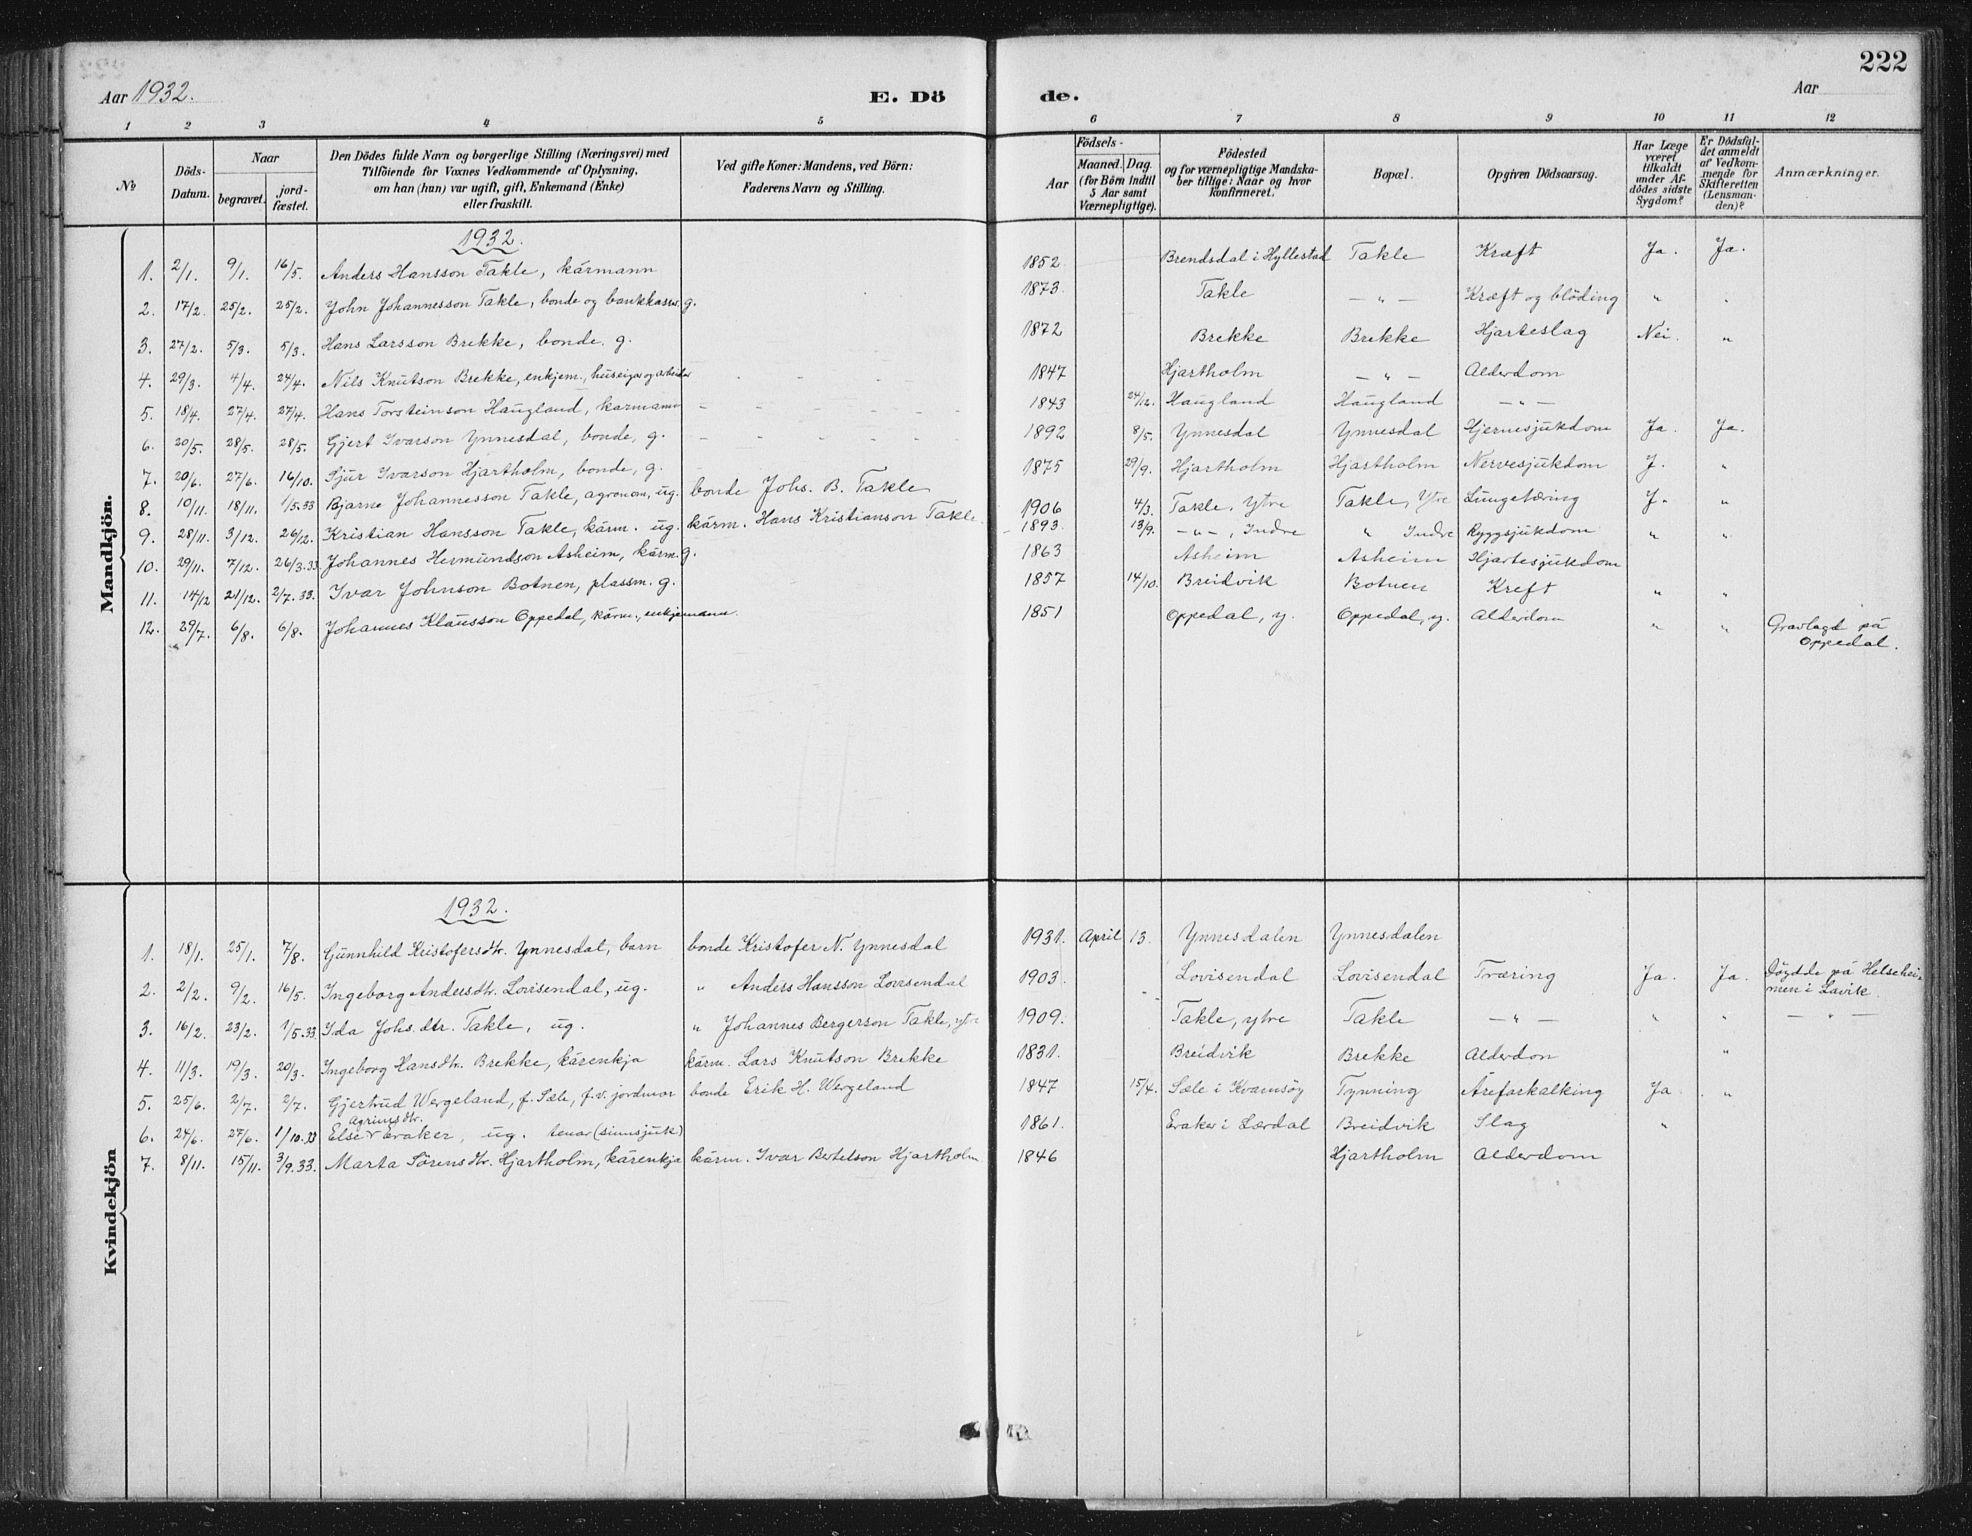 222
Aar 1932. E. Dö de. Aar
1 2 3 4 5 6 7 8 9 10 11 12
No Döds-Datum. Naar begravet. jord-fæstet. Den Dödes fulde Navn og borgerlige Stilling (Næringsvei) med Tilföiende for Voxnes Vedkommende af Oplysning, om han (hun) var ugift, gift, Enkemand (Enke) eller fraskilt. Ved gifte Koner: Mandens, ved Börn: Faderens Navn og Stilling. Födsels- Aar Maaned. Dag. (for Börn indtil 5 Aar samt Værnepligtige). Födested og for værnepligtige Mandskaber tillige: Naar og hvor konfirmeret. Bopæl. Opgiven Dödsaarsag. Har Læge været tilkaldt under Afdödes sidste Sygdom? Er Dödsfaldet anmeldt af Vedkommende for Skifteretten (Lensmanden)? Anmærkninger.
Mandkjön.
1932.
1. 2/1. 9/1. 16/5. Anders Hansson Takle, kårmann 1852 Brendsdal i Hyllestad Takle Kræft Ja. Ja.
2. 17/2. 25/2. 25/2. John Johannesson Takle, bonde og bankkasser. g. 1873 Takle — „ — Kræft og blöding „ .
3. 27/2. 5/3. 5/3. Hans Larsson Brekke, bonde. g. 1872 Brekke Brekke Hjarteslag Nei. „
4. 29/3. 4/4. 24/4. Nils Knutson Brekke, enkjem., huseigar og arbeider 1847 Hjartholm — „ — Alderdom
5. 18/4. 27/4. 27/4. Hans Torsteinson Haugland, karmann 1843 24/12. Haugland Haugland — „ —
6. 20/5. 28/5. 28/5. Gjert Ivarson Ynnesdal, bonde, g. 1892 8/5. Ynnesdal Ynnesdal Hjernesjukdom Ja. Ja.
7. 20/6. 27/6. 16/10. Sjur Ivarson Hjartholm, bonde, g. 1875 29/9. Hjartholm Hjartholm Nervesjukdom J. „
8. 10/11. 18/11. 1/5.33 Bjarne Johannesson Takle, agronom, ug. bonde Johs. B. Takle 1906 4/3. Takle, Ytre Takle, Ytre Lungetæring J. „
9. 28/11. 3/12. 26/12. Kristian Hansson Takle, kårm. ug. kårm. Hans Kristianson Takle 1893. 13/9. — „ —, Indre „ Indre Ryggsjukdom „ „
10. 29/11. 7/12. 26/3.33 Johannes Hermundson Asheim, kårm. g. 1863 Asheim Asheim Hjartesjukdom
11. 14/12 21/12. 2/7.33. Ivar Johnson Botnen, plassm. g. 1857 14/10. Breidvik Botnen Kreft „ „
12. 29/7. 6/8. 6/8. Johannes Klausson Oppedal, kårm., enkjemann. 1851 Oppedal, y. Oppedal, y. Alderdom „ „ Gravlagd på Oppedal.
Kvindekjön
1932.
1. 18/1. 25/1. 7/8. Gunnhild Kristofersdtr. Ynnesdal, barn bonde Kristofer N. Ynnesdal 1931. April 13. Ynnesdalen Ynnesdalen
2. 2/2. 9/2. 16/5. Ingeborg Andersdtr. Lovisendal, ug. „ Anders Hansson Lovisendal 1903 Lovisendal Lovisendal Træring Ja. Ja. Döydde på Helseheimen i Lavik.
3. 16/2. 23/2. 1/5.33 Ida Johs.dtr. Takle, ug. „ Johannes Bergerson Takle, ytre 1909. Takle, ytre Takle — „ — „ „ — „ —
4. 11/3. 19/3. 20/3. Ingeborg Hansdtr. Brekke, kårenkja kårm. Lars Knutson Brekke 1831. Breidvik Brekke Alderdom „
5. 25/6. 2/7. 2/7. Gjertrud Wergeland, f. Sæle, f.v. jordmor bonde Erik H. Wergeland 1847 15/4. Sæle i Kvamsöy Tynning Åreforkalking Ja „
6. 24/6. 27/6. 1/10.33 Else Agrimsdtr. Eraker, ug. (sinnsjuk) 1861. Eraker i Lærdal Breidvik Slag „
7. 8/11. 15/11. 3/9.33. Marta Sörensdtr. Hjartholm, kårenkja kårm. Ivar Bertelson Hjartholm 1846 Hjartholm Alderdom